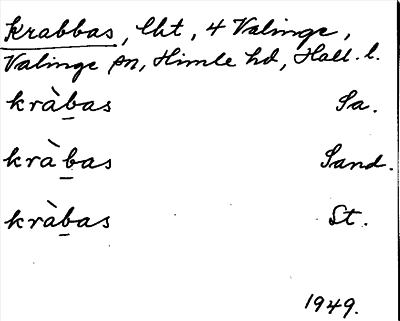 Krabbas, lht, 4 Valinge,
Valinge sn, Himle hd, Hall. l.
kràb̲as Sa.
kràb̲as Sand.
kràb̲as St.
1949.